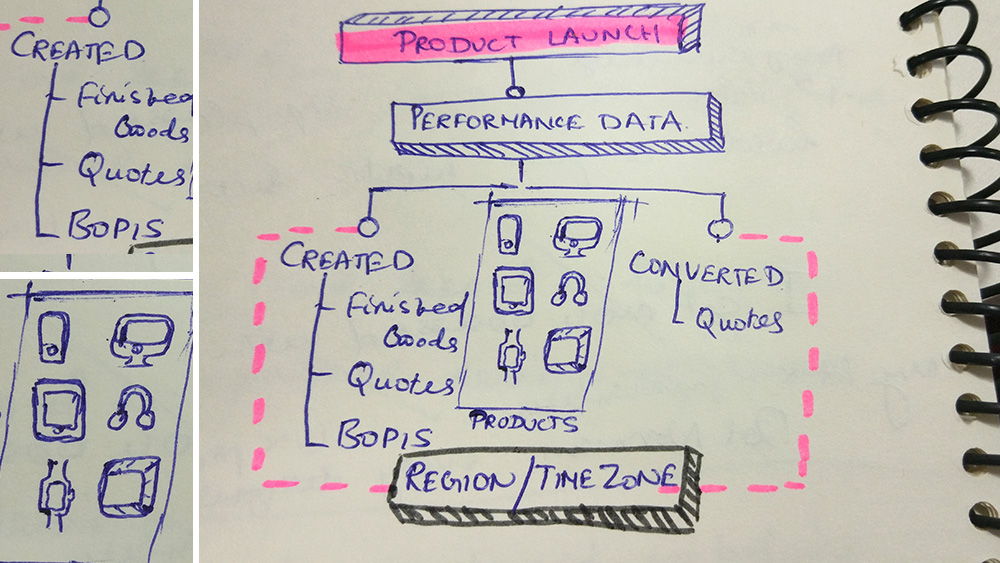 CREATED
Finished
Goods
Quotes
BOPIS
PRODUCT LAUNCH
PERFORMANCE DATA.
CREATED
Finished
Goods
Quotes
BOPIS
PRODUCTS
CONVERTED
Quotes
REGION/TIMEZONE